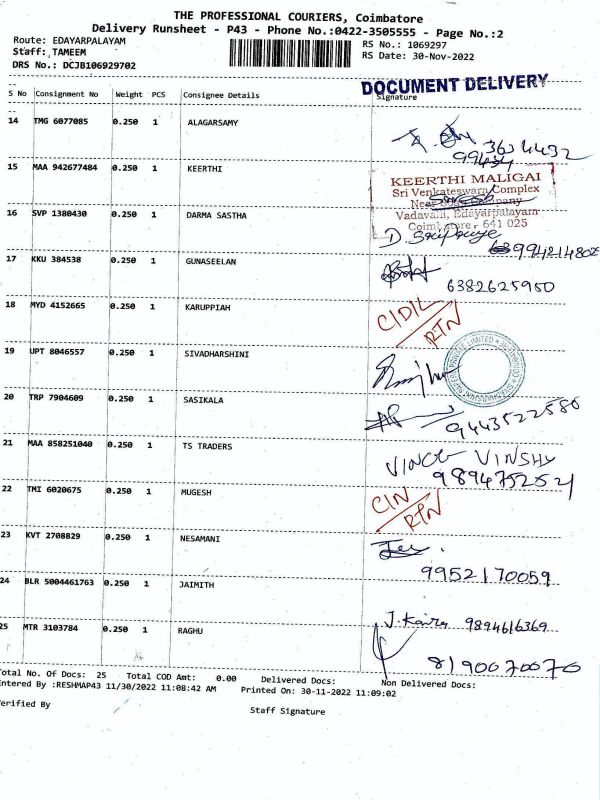 THE PROFESSIONAL COURIERS, Coimbatore
Delivery Runsheet - P43 - Phone No.:0422-3505555 - Page No.:2
Route: EDAYARPALAYAM
RS No.: 1069297
Staff: TAMEEM
RS Date: 30-Nov-2022
DRS No.: DCJB106929702
DOCUMENT DELIVERY
S No Consignment No Weight PCS Consignee Details Signature
14 TMG 6077085 0.250 1 ALAGARSAMY
15 MAA 942677484 0.250 1 KEERTHI
KEERTHI MALIGAI
Sri Venkateswara Complex
16 SVP 1380430 0.250 1 DARMA SASTHA
Vadavalli, Edayarpalayam
641 025
17 KKU 384538 0.250 1 GUNASEELAN
6382625950
18 MYD 4152665 0.250 1 KARUPPIAH
CIDIL
RTN
19 UPT 8046557 0.250 1 SIVADHARSHINI
20 TRP 7904609 0.250 1 SASIKALA
9443522580
21 MAA 858251040 0.250 1 TS TRADERS
VINSHY
22 TMI 6020675 0.250 1 MUGESH
CIN
RTN
23 KVT 2708829 0.250 1 NESAMANI
9952170059
24 BLR 5004461763 0.250 1 JAIMITH
9894616369
25 MTR 3103784 0.250 1 RAGHU
8190070070
Total No. Of Docs: 25 Total COD Amt: 0.00 Delivered Docs: Non Delivered Docs:
Entered By :RESHMAP43 11/30/2022 11:08:42 AM Printed On: 30-11-2022 11:09:02
Verified By
Staff Signature